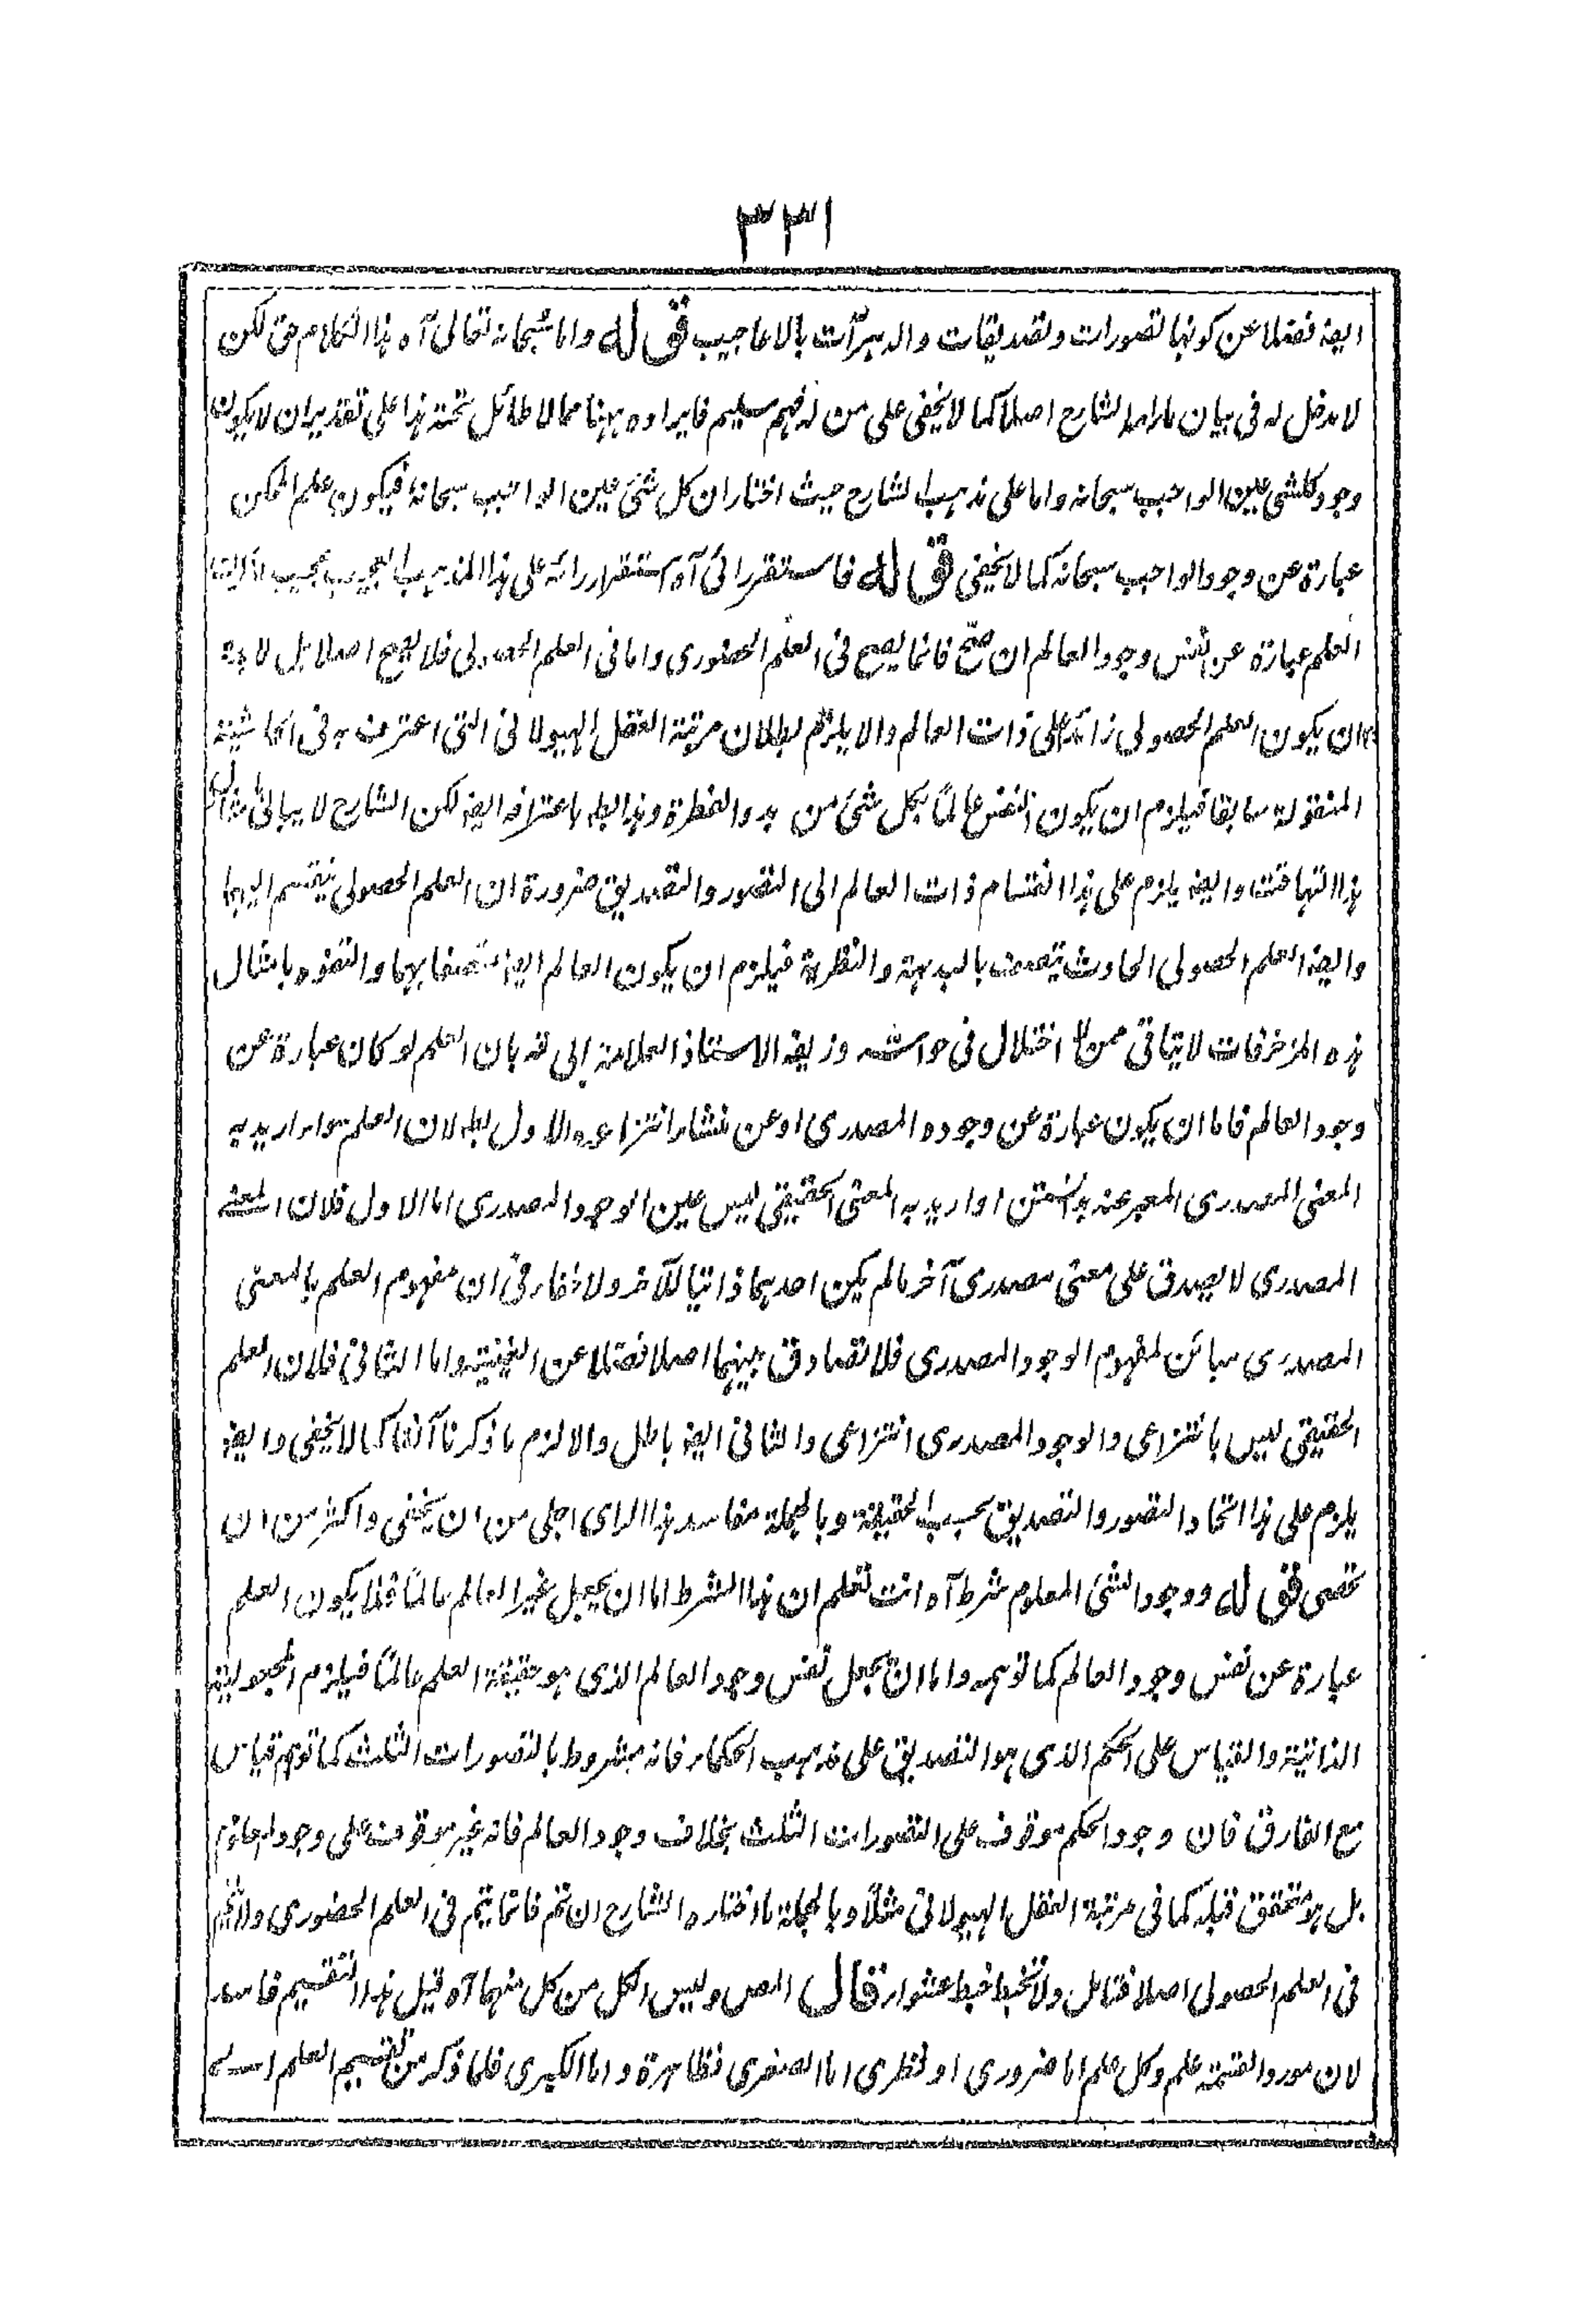 ٣٣١
ايضا فضلا عن كونها تصورات وتصديقات والدهر آت بالاعاجيب قوله واما سبحانه تعالى آه هذا الكلام حق لكن
لا مدخل له فى بيان مرام الشارح اصلا كما لا يخفى على من له فهم سليم فايراده ههنا مما لا طائل تحته هذا على تقدير ان لا يكون
وجود كل شئ عين الواجب سبحانه واما على مذهب الشارح حيث اختار ان كل شئ عين الواجب سبحانه فيكون علم الممكن
عبارة عن وجود الواجب سبحانه كما لا يخفى قوله فاستقر رائى آه استقرار رائه على هذا المذهب العجيب عجيب
العلم عبارة عن نفس وجود العالم ان صح فانما يصح فى العلم الحضورى واما فى العلم الحصولى فلا يصح اصلا بل لا بد
ان يكون العلم الحصولى زائدا على ذات العالم والا يلزم بطلان مرتبة العقل الهيولانى التى اعترف به فى الحاشية
المنقولة سابقا فيلزم ان يكون النفس عالما بكل شئ من بدو الفطرة وهذا بط باعترافه ايضا لكن الشارح لا يبالى
هذا التهافت وايضا يلزم على هذا انقسام ذات العالم الى التصور والتصديق ضرورة ان العلم الحصولى ينقسم اليهما
وايضا العلم الحصولى الحادث يتصف بالبديهة والنظرية فيلزم ان يكون العالم ايضا متصفا بهما والتفوه بامثال
هذه المزخرفات لا يتاتى ممن له اختلال فى حواسه وزيفه الاستاذ العلامة ابى قده بان العلم لو كان عبارة عن
وجود العالم فاما ان يكون عبارة عن وجوده المصدرى او عن منشاء انتزاعه الاول بط لان العلم سواء اريد به
المعنى المصدرى المعبر عنه بدانستن او اريد به المعنى الحقيقى ليس عين الوجود المصدرى اما الاول فلان المعنى
المصدرى لا يصدق على معنى مصدرى آخر ما لم يكن احدهما ذاتيا للآخر ولا خفاء فى ان مفهوم العلم بالمعنى
المصدرى مبائن لمفهوم الوجود المصدرى فلا تصادق بينهما اصلا فضلا عن العينية واما الثانى فلان العلم
الحقيقى ليس بانتزاعى والوجود المصدرى انتزاعى والثانى ايضا باطل والا لزم ما ذكرنا آنفا كما لا يخفى وايضا
يلزم على هذا اتحاد التصور والتصديق بحسب الحقيقة وبالجملة مفاسد هذا الراى اجلى من ان يخفى واكثر من ان
تحصى قوله ووجود الشئ المعلوم شرط آه انت تعلم ان هذا الشرط اما ان يجعل غير العالم عالما فلا يكون العلم
عبارة عن نفس وجود العالم كما توهمه واما ان يجعل نفس وجود العالم الذى هو حقيقة العلم عالما فيلزم المجعولية
الذاتية والقياس على الحكم الذى هو التصديق على مذهب الحكماء فانه مشروط بالتصورات الثلث كما توهم قياس
مع الفارق فان وجود الحكم موقوف على التصورات الثلث بخلاف وجود العالم فانه غير موقوف على وجود المعلوم
بل هو متحقق قبله كما فى مرتبة العقل الهيولانى مثلا وبالجملة ما اختاره الشارح ان تم فانما يتم فى العلم الحضورى ولا يتم
فى العلم الحصولى اصلا فتامل ولا تخبط خبط عشواء قال المص وليس الكل من كل منهما آه قيل هذا التقسيم فاسد
لان مورد القسمة علم وكل علم اما ضرورى او نظرى اما الصغرى فظاهرة واما الكبرى فلما ذكر من تقسيم العلم الى